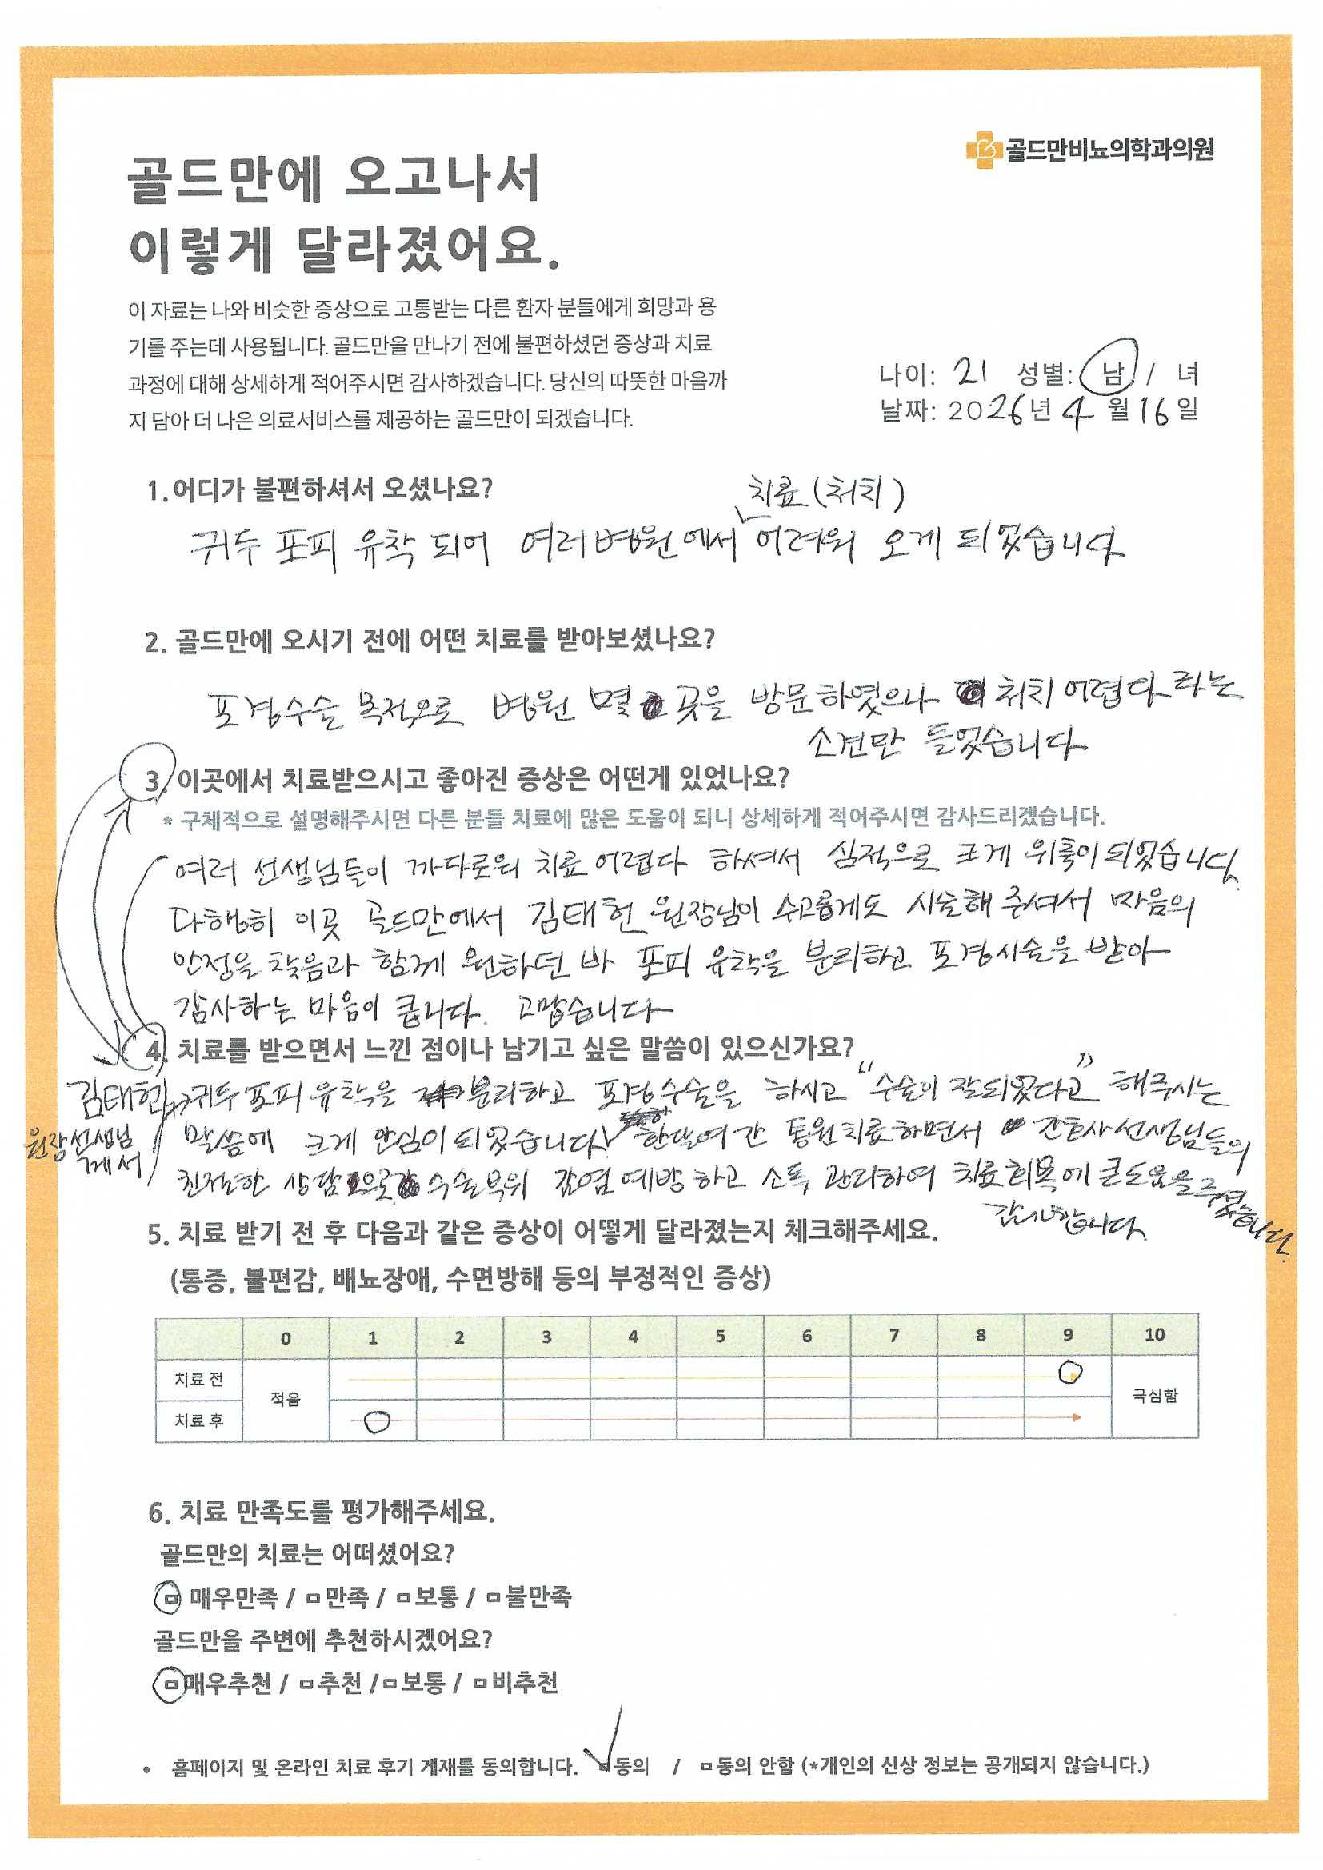 골드만비뇨의학과의원
골드만에 오고나서
이렇게 달라졌어요.
이 자료는 나와 비슷한 증상으로 고통받는 다른 환자 분들에게 희망과 용
기를 주는데 사용됩니다. 골드만을 만나기 전에 불편하셨던 증상과 치료
과정에 대해 상세하게 적어주시면 감사하겠습니다. 당신의 따뜻한 마음까
지 담아 더 나은 의료서비스를 제공하는 골드만이 되겠습니다.
나이: 21 성별: 남 / 녀
날짜: 2026년 4월 16일
1.어디가 불편하셔서 오셨나요?
치료(처치)
귀두 포피 유착 되어 여러 병원에서 어려워 오게 되었습니다
2. 골드만에 오시기 전에 어떤 치료를 받아보셨나요?
포경수술 목적으로 병원 몇 곳을 방문하였으나 처치 어렵다라는
소견만 들었습니다
3. 이곳에서 치료받으시고 좋아진 증상은 어떤게 있었나요?
* 구체적으로 설명해주시면 다른 분들 치료에 많은 도움이 되니 상세하게 적어주시면 감사드리겠습니다.
여러 선생님들이 까다로워 치료 어렵다 하셔서 심적으로 크게 위축이 되었습니다.
다행히 이곳 골드만에서 김태헌 원장님이 수고롭게도 시술해 주셔서 마음의
안정을 찾음과 함께 원하던 바 포피 유착을 분리하고 포경시술을 받아
감사하는 마음이 큽니다. 고맙습니다
4. 치료를 받으면서 느낀 점이나 남기고 싶은 말씀이 있으신가요?
김태헌 귀두 포피 유착을 분리하고 포경수술을 하시고 "수술이 잘되었다고" 해주시는
원장선생님
께서
말씀에 크게 안심이 되었습니다! 한달여간 통원치료하면서 간호사선생님들의
친절한 상담으로 수술부위 감염예방하고 소독, 관리하여 치료회복에 큰도움을 주셨습니다.
감사합니다.
5. 치료 받기 전 후 다음과 같은 증상이 어떻게 달라졌는지 체크해주세요.
(통증, 불편감, 배뇨장애, 수면방해 등의 부정적인 증상)
0 1 2 3 4 5 6 7 8 9 10
치료 전
적음
극심함
치료 후
6. 치료 만족도를 평가해주세요.
골드만의 치료는 어떠셨어요?
매우만족 / 만족 / 보통 / 불만족
골드만을 주변에 추천하시겠어요?
매우추천 / 추천 / 보통 / 비추천
• 홈페이지 및 온라인 치료 후기 게재를 동의합니다. 동의 / 동의 안함 (*개인의 신상 정보는 공개되지 않습니다.)